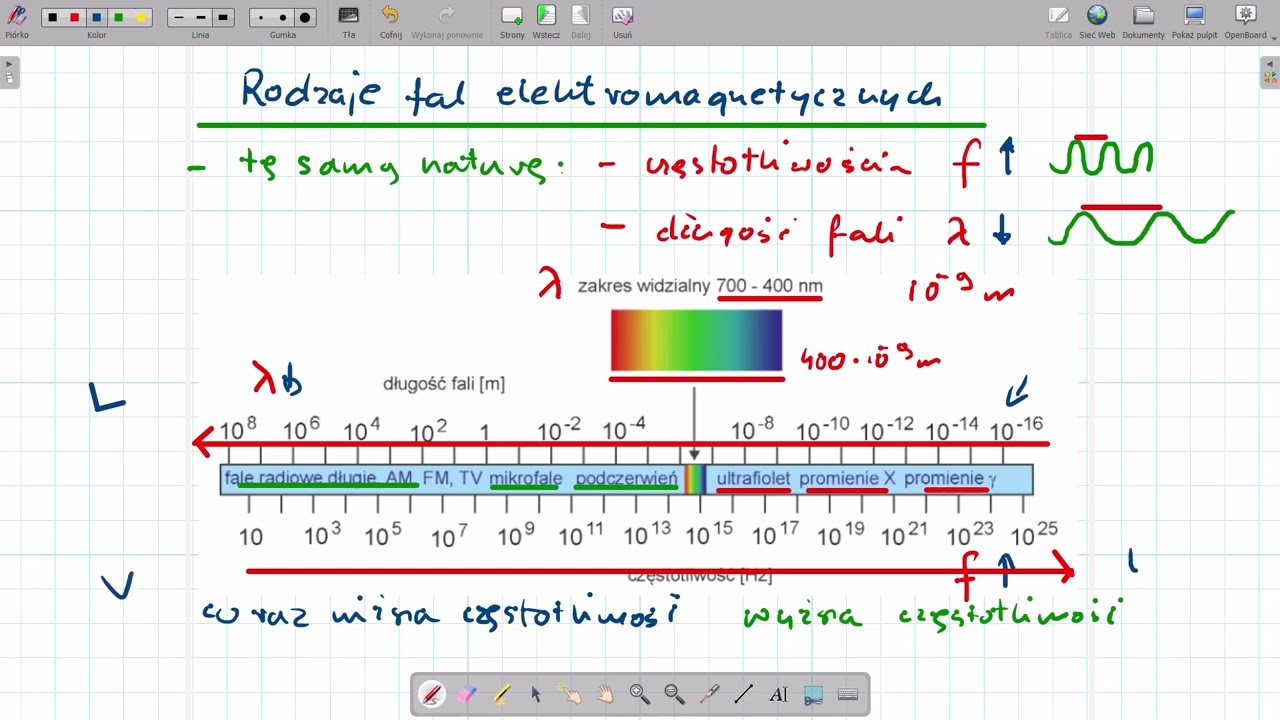 Piórko Kolor Linia Gumka Tła Cofnij Wykonaj ponownie Strony Wstecz Dalej Usuń Tablica Sieć Web Dokumenty Pokaż pulpit OpenBoard
Rodzaje fal elektromagnetycznych
- tę samą naturę: - częstotliwością f
- długość fali λ
λ zakres widzialny 700 - 400 nm 10⁻⁹ m
400·10⁻⁹ m
λ długość fali [m]
10⁸ 10⁶ 10⁴ 10² 1 10⁻² 10⁻⁴ 10⁻⁸ 10⁻¹⁰ 10⁻¹² 10⁻¹⁴ 10⁻¹⁶
fale radiowe długie AM, FM, TV mikrofale podczerwień ultrafiolet promienie X promienie γ
10 10³ 10⁵ 10⁷ 10⁹ 10¹¹ 10¹³ 10¹⁵ 10¹⁷ 10¹⁹ 10²¹ 10²³ 10²⁵
częstotliwość [Hz] f
coraz niższa częstotliwość wyższa częstotliwość
AI